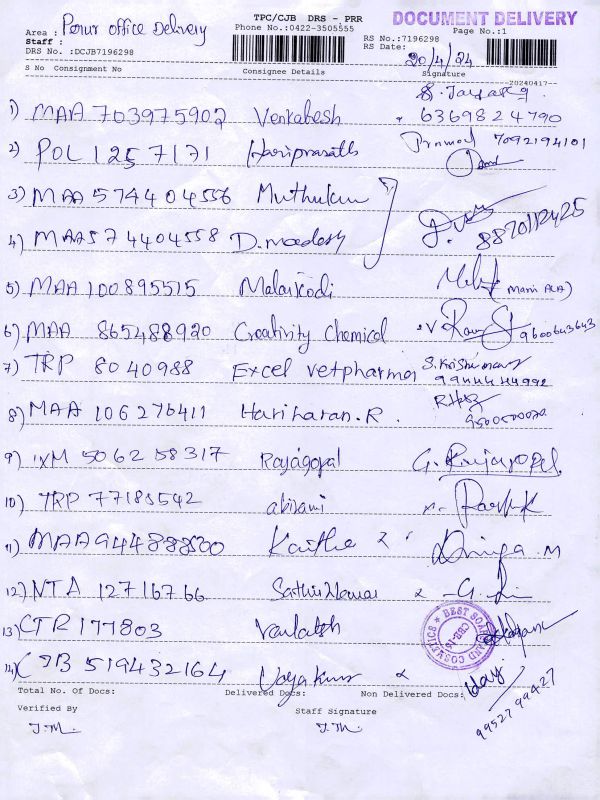 TPC/CJB DRS - PRR DOCUMENT DELIVERY
Area : Perur office Delivery Phone No.:0422-3505555 Page No.:1
Staff : RS No.:7196298
DRS No. :DCJB7196298 RS Date: 20/4/24
S No Consignment No Consignee Details Signature
--20240417--
1) MAA 703975902 Venkatesh 6369824790
2) POL 1257171 Hariprasath Pramod 7092194101
3) MAA 574404556 Muthukum
4) MAA574404558 D.madesh 8870112425
5) MAA 100895515 Malarkodi
6) MAA 865488920 Creativity Chemical 9600643643
7) TRP 8040988 Excel vetpharma S.Krishna
8) MAA 106276411 Hariharan.R.
9) 506258317 Rajagopal G. Rajagopal
10) TRP 77185542 abirami
11) MAA944888500 Karthe
12) NTA 12716766
13) CTR 177803 Venkatesh
BEST SOAP AND COSMETICS
14) CJB 519432164 Udayakumar Uday
Total No. Of Docs: Delivered Docs: Non Delivered Docs:
9952799427
Verified By Staff Signature
J.M. J.M.